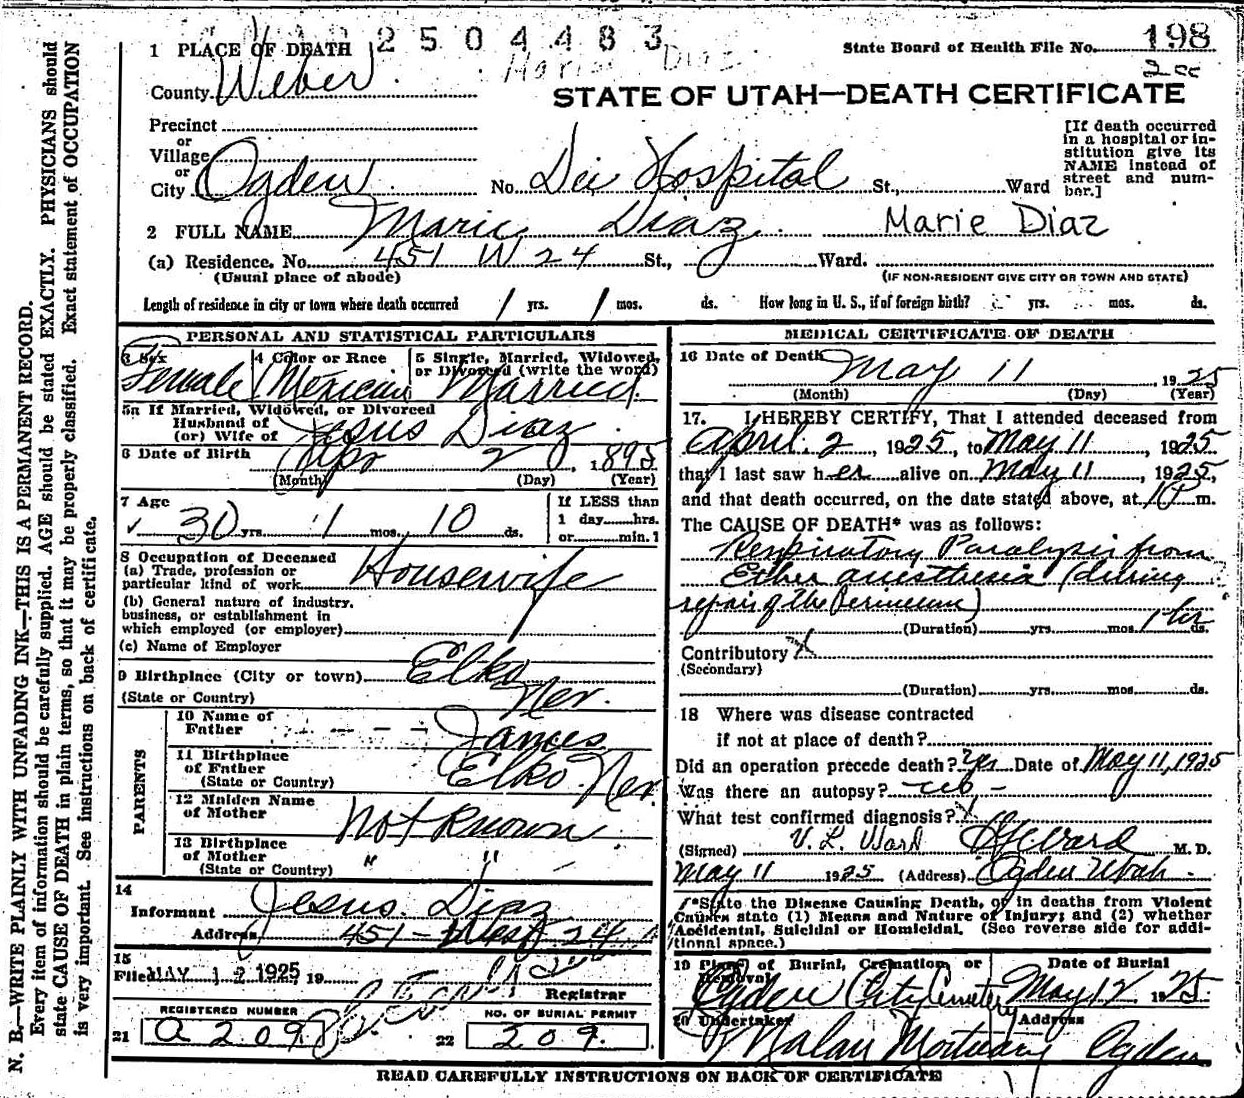 2504483
Marie Diaz
1 PLACE OF DEATH
State Board of Health File No. 198
2 cc
County Weber
STATE OF UTAH—DEATH CERTIFICATE
Precinct
or
Village
or
City Ogden No. Dee Hospital St., Ward
[If death occurred
in a hospital or in-
stitution give its
NAME instead of
street and num-
ber.]
2 FULL NAME Marie Diaz Marie Diaz
(a) Residence. No. 451 W 24 St., Ward.
(Usual place of abode) (IF NON-RESIDENT GIVE CITY OR TOWN AND STATE)
Length of residence in city or town where death occurred 1 yrs. 1 mos. ds. How long in U. S., if of foreign birth? yrs. mos. ds.
PERSONAL AND STATISTICAL PARTICULARS
3 Sex 4 Color or Race 5 Single, Married, Widowed,
or Divorced (write the word)
Female Mexican Married
5a If Married, Widowed, or Divorced
Husband of
(or) Wife of Jesus Diaz
6 Date of Birth Apr 2 1895
(Month) (Day) (Year)
7 Age If LESS than
30 yrs. 1 mos. 10 ds. 1 day......hrs.
or......min.1
8 Occupation of Deceased
(a) Trade, profession or
particular kind of work Housewife
(b) General nature of industry,
business, or establishment in
which employed (or employer)
(c) Name of Employer
9 Birthplace (City or town) Elko
(State or Country) Nev.
PARENTS
10 Name of
Father James
11 Birthplace
of Father Elko Nev.
(State or Country)
12 Maiden Name
of Mother Not Known
13 Birthplace
of Mother " "
(State or Country)
14
Informant Jesus Diaz
Address 451 - West 24
15
Filed MAY 12 1925 19
Registrar
REGISTERED NUMBER NO. OF BURIAL PERMIT
21 a 209 22 209
MEDICAL CERTIFICATE OF DEATH
16 Date of Death May 11 1925
(Month) (Day) (Year)
17. I HEREBY CERTIFY, That I attended deceased from
April 2, 1925, to May 11, 1925
that I last saw her alive on May 11, 1925,
and that death occurred, on the date stated above, at 1 P m.
The CAUSE OF DEATH* was as follows:
Respiratory Paralysis from
Ether anesthesia (during
repair of the Perineum)
(Duration) yrs. mos. 1 hr ds.
Contributory
(Secondary)
(Duration) yrs. mos. ds.
18 Where was disease contracted
if not at place of death?
Did an operation precede death? Yes Date of May 11, 1925
Was there an autopsy?
What test confirmed diagnosis?
(Signed) V. L. Ward Ward M. D.
May 11 1925 (Address) Ogden Utah
*State the Disease Causing Death, or in deaths from Violent
Causes state (1) Means and Nature of Injury; and (2) whether
Accidental, Suicidal or Homicidal. (See reverse side for addi-
tional space.)
19 Place of Burial, Cremation, or Date of Burial
Removal
Ogden City Cemetery May 12 1925
20 Undertaker Address
Malan Mortuary Ogden
READ CAREFULLY INSTRUCTIONS ON BACK OF CERTIFICATE
N. B.—WRITE PLAINLY WITH UNFADING INK—THIS IS A PERMANENT RECORD.
Every item of information should be carefully supplied. AGE should be stated EXACTLY. PHYSICIANS should
state CAUSE OF DEATH in plain terms, so that it may be properly classified. Exact statement of OCCUPATION
is very important. See instructions on back of certificate.